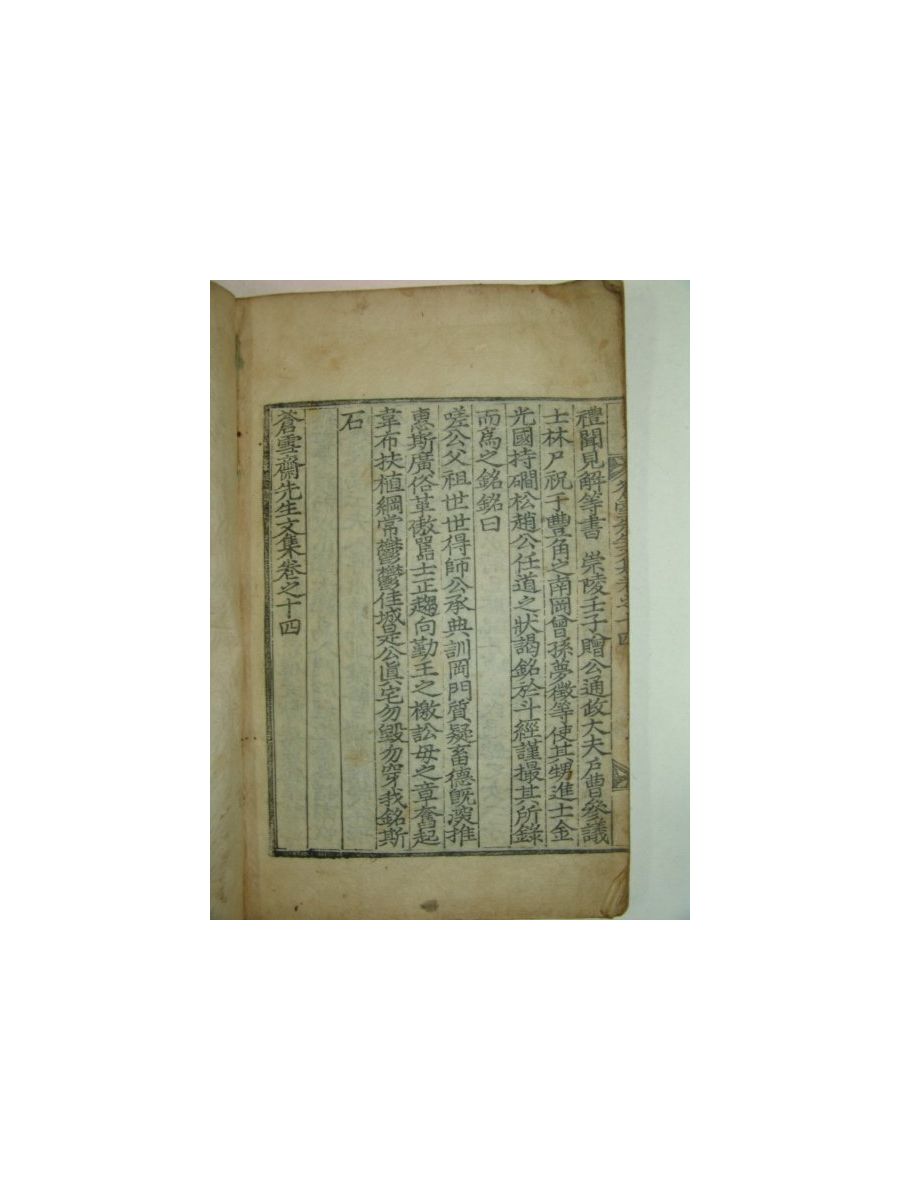 禮聞見解等書 崇陵壬子贈公通政大夫戶曹參議
士林尸祝于豐角之南岡曾孫夢徵等使其甥進士金
光國持磵松趙公任道之狀謁銘於斗經謹撮其所錄
而爲之銘銘曰
嗟公父祖世世得師公承典訓岡門質疑畜德旣深推
惠斯廣俗革傲嚚士正趨向勤王之檄訟毋之章奮起
韋布扶植綱常鬱鬱佳城是公眞宅勿毀勿穿我銘斯
石
蒼雪齋先生文集卷之十四